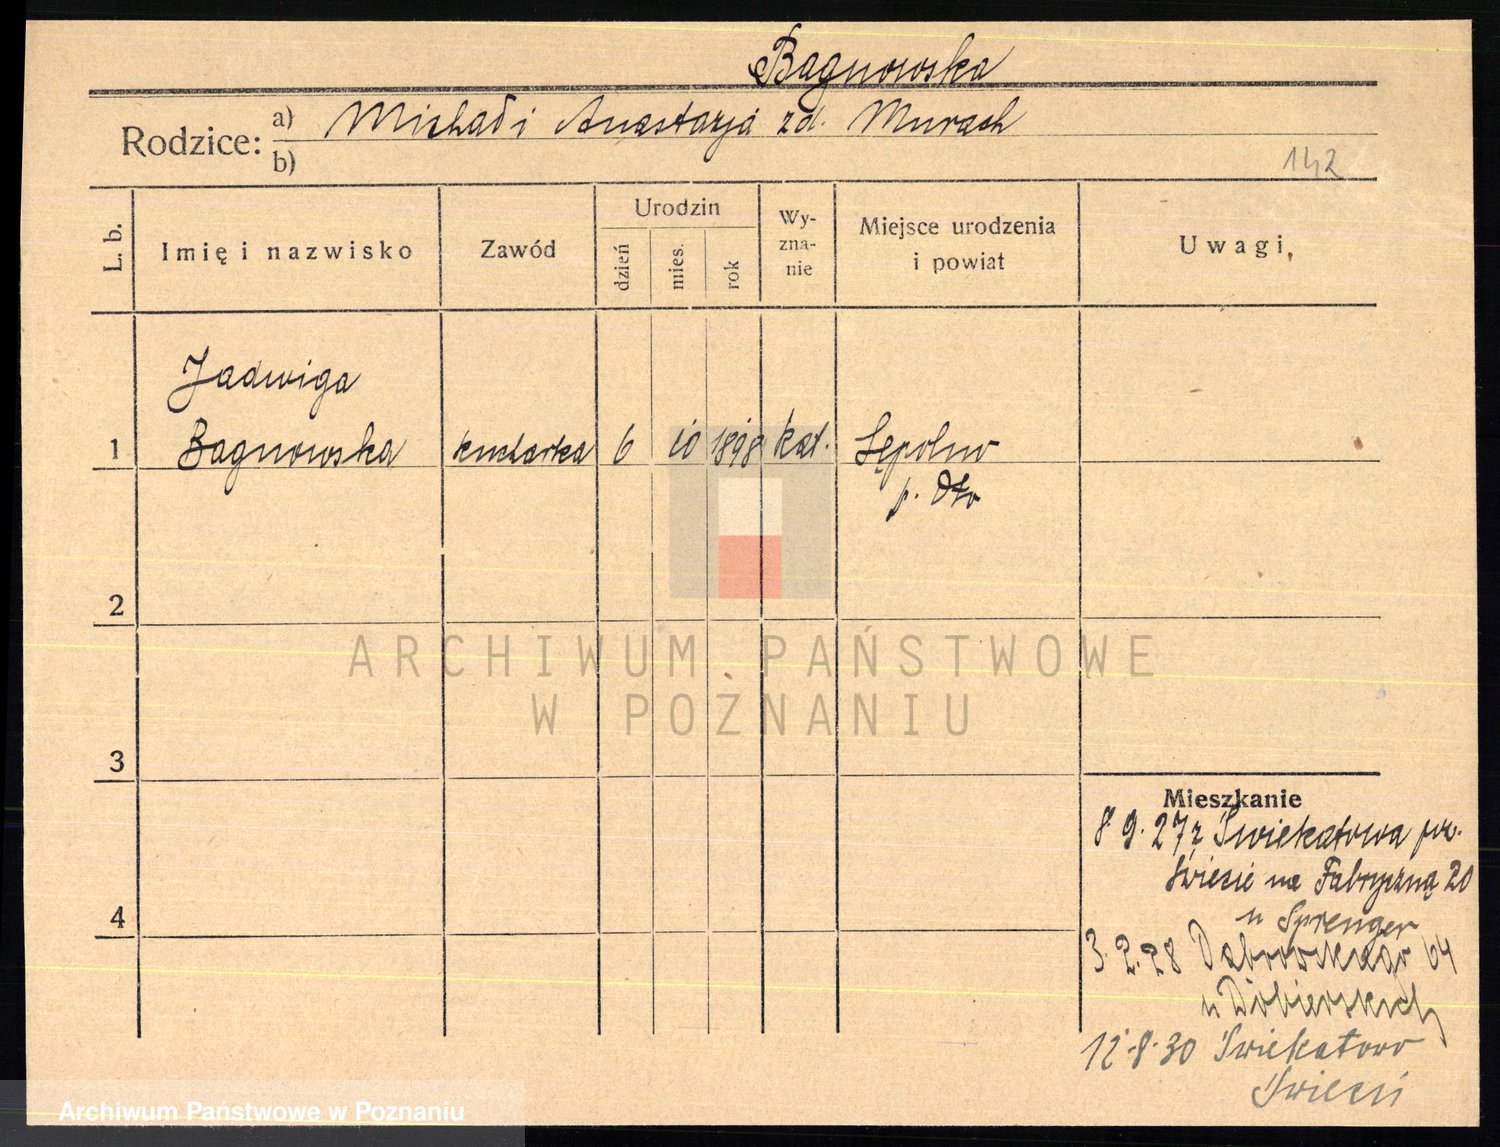 Bagnowska
Rodzice: a) Michał i Anastazja zd. Murach
b)
142
L. b.
Imię i nazwisko
Zawód
Urodzin
dzień
mies.
rok
Wy-
zna-
nie
Miejsce urodzenia
i powiat
Uwagi
Jadwiga
1 Bagnowska kucharka 6 10 1898 kat. Sępolno
p. dto
2
3
4
Mieszkanie
8.9.27 z Świekatowa pow.
Świecie na Fabryczną 20
u Sprenger
3.2.28 Dąbrowskiego 64
u
12.8.30 Świekatowo
ARCHIWUM PAŃSTWOWE
W POZNANIU
Archiwum Państwowe w Poznaniu